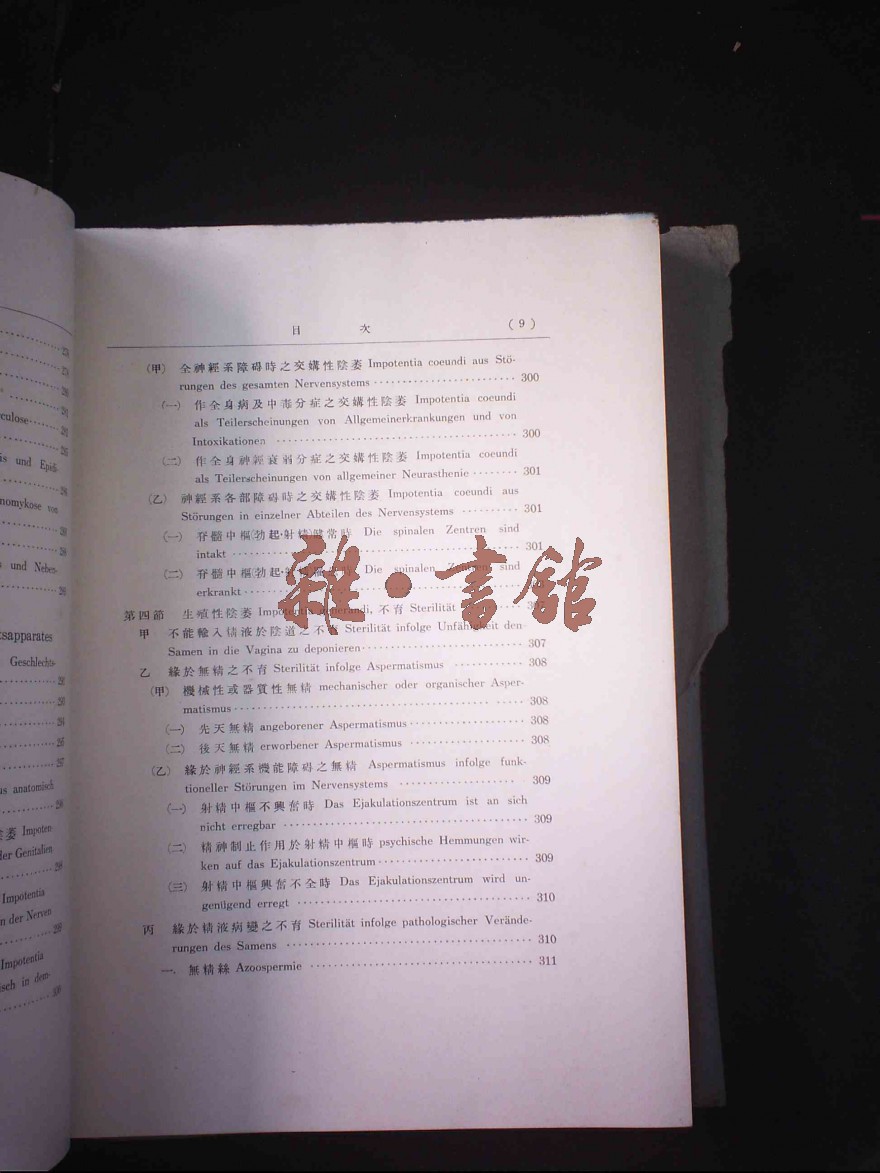 目 次 (9)
(甲) 全神經系障碍時之交媾性陰萎 Impotentia coeundi aus Stö-
rungen des gesamten Nervensystems 300
(一) 作全身病及中毒分症之交媾性陰萎 Impotentia coeundi
als Teilerscheinungen von Allgemeinerkrankungen und von
Intoxikationen 300
(二) 作全身神經衰弱分症之交媾性陰萎 Impotentia coeundi
als Teilerscheinungen von allgemeiner Neurasthenie 301
(乙) 神經系各部障碍時之交媾性陰萎 Impotentia coeundi aus
Störungen in einzelner Abteilen des Nervensystems 301
(一) 脊髓中樞(勃起·射精)健常時 Die spinalen Zentren sind
intakt 301
(二) 脊髓中樞(勃起 Die spinalen sind
erkrankt
第四節 生殖性陰萎 Impotentia generandi, 不育 Sterilität
甲 不能輸入精液於陰道之不育 Sterilität infolge Unfähigkeit den
Samen in die Vagina zu deponieren 307
乙 緣於無精之不育 Sterilität infolge Aspermatismus 308
(甲) 機械性或器質性無精 mechanischer oder organischer Asper-
matismus 308
(一) 先天無精 angeborener Aspermatismus 308
(二) 後天無精 erworbener Aspermatismus 308
(乙) 緣於神經系機能障碍之無精 Aspermatismus infolge funk-
tioneller Störungen im Nervensystems 309
(一) 射精中樞不興奮時 Das Ejakulationszentrum ist an sich
nicht erregbar 309
(二) 精神制止作用於射精中樞時 psychische Hemmungen wir-
ken auf das Ejakulationszentrum 309
(三) 射精中樞興奮不全時 Das Ejakulationszentrum wird un-
genügend erregt 310
丙 緣於精液病變之不育 Sterilität infolge pathologischer Verände-
rungen des Samens 310
一. 無精絲 Azoospermie 311
雜·書館
culose
is und Epid-
nomykose von
s und Nebes-
tsapparates
Geschlechts-
us anatomisch
陰萎 Impoten-
der Genitalien
Impotentia
n der Nerven
Impotentia
isch in dem-